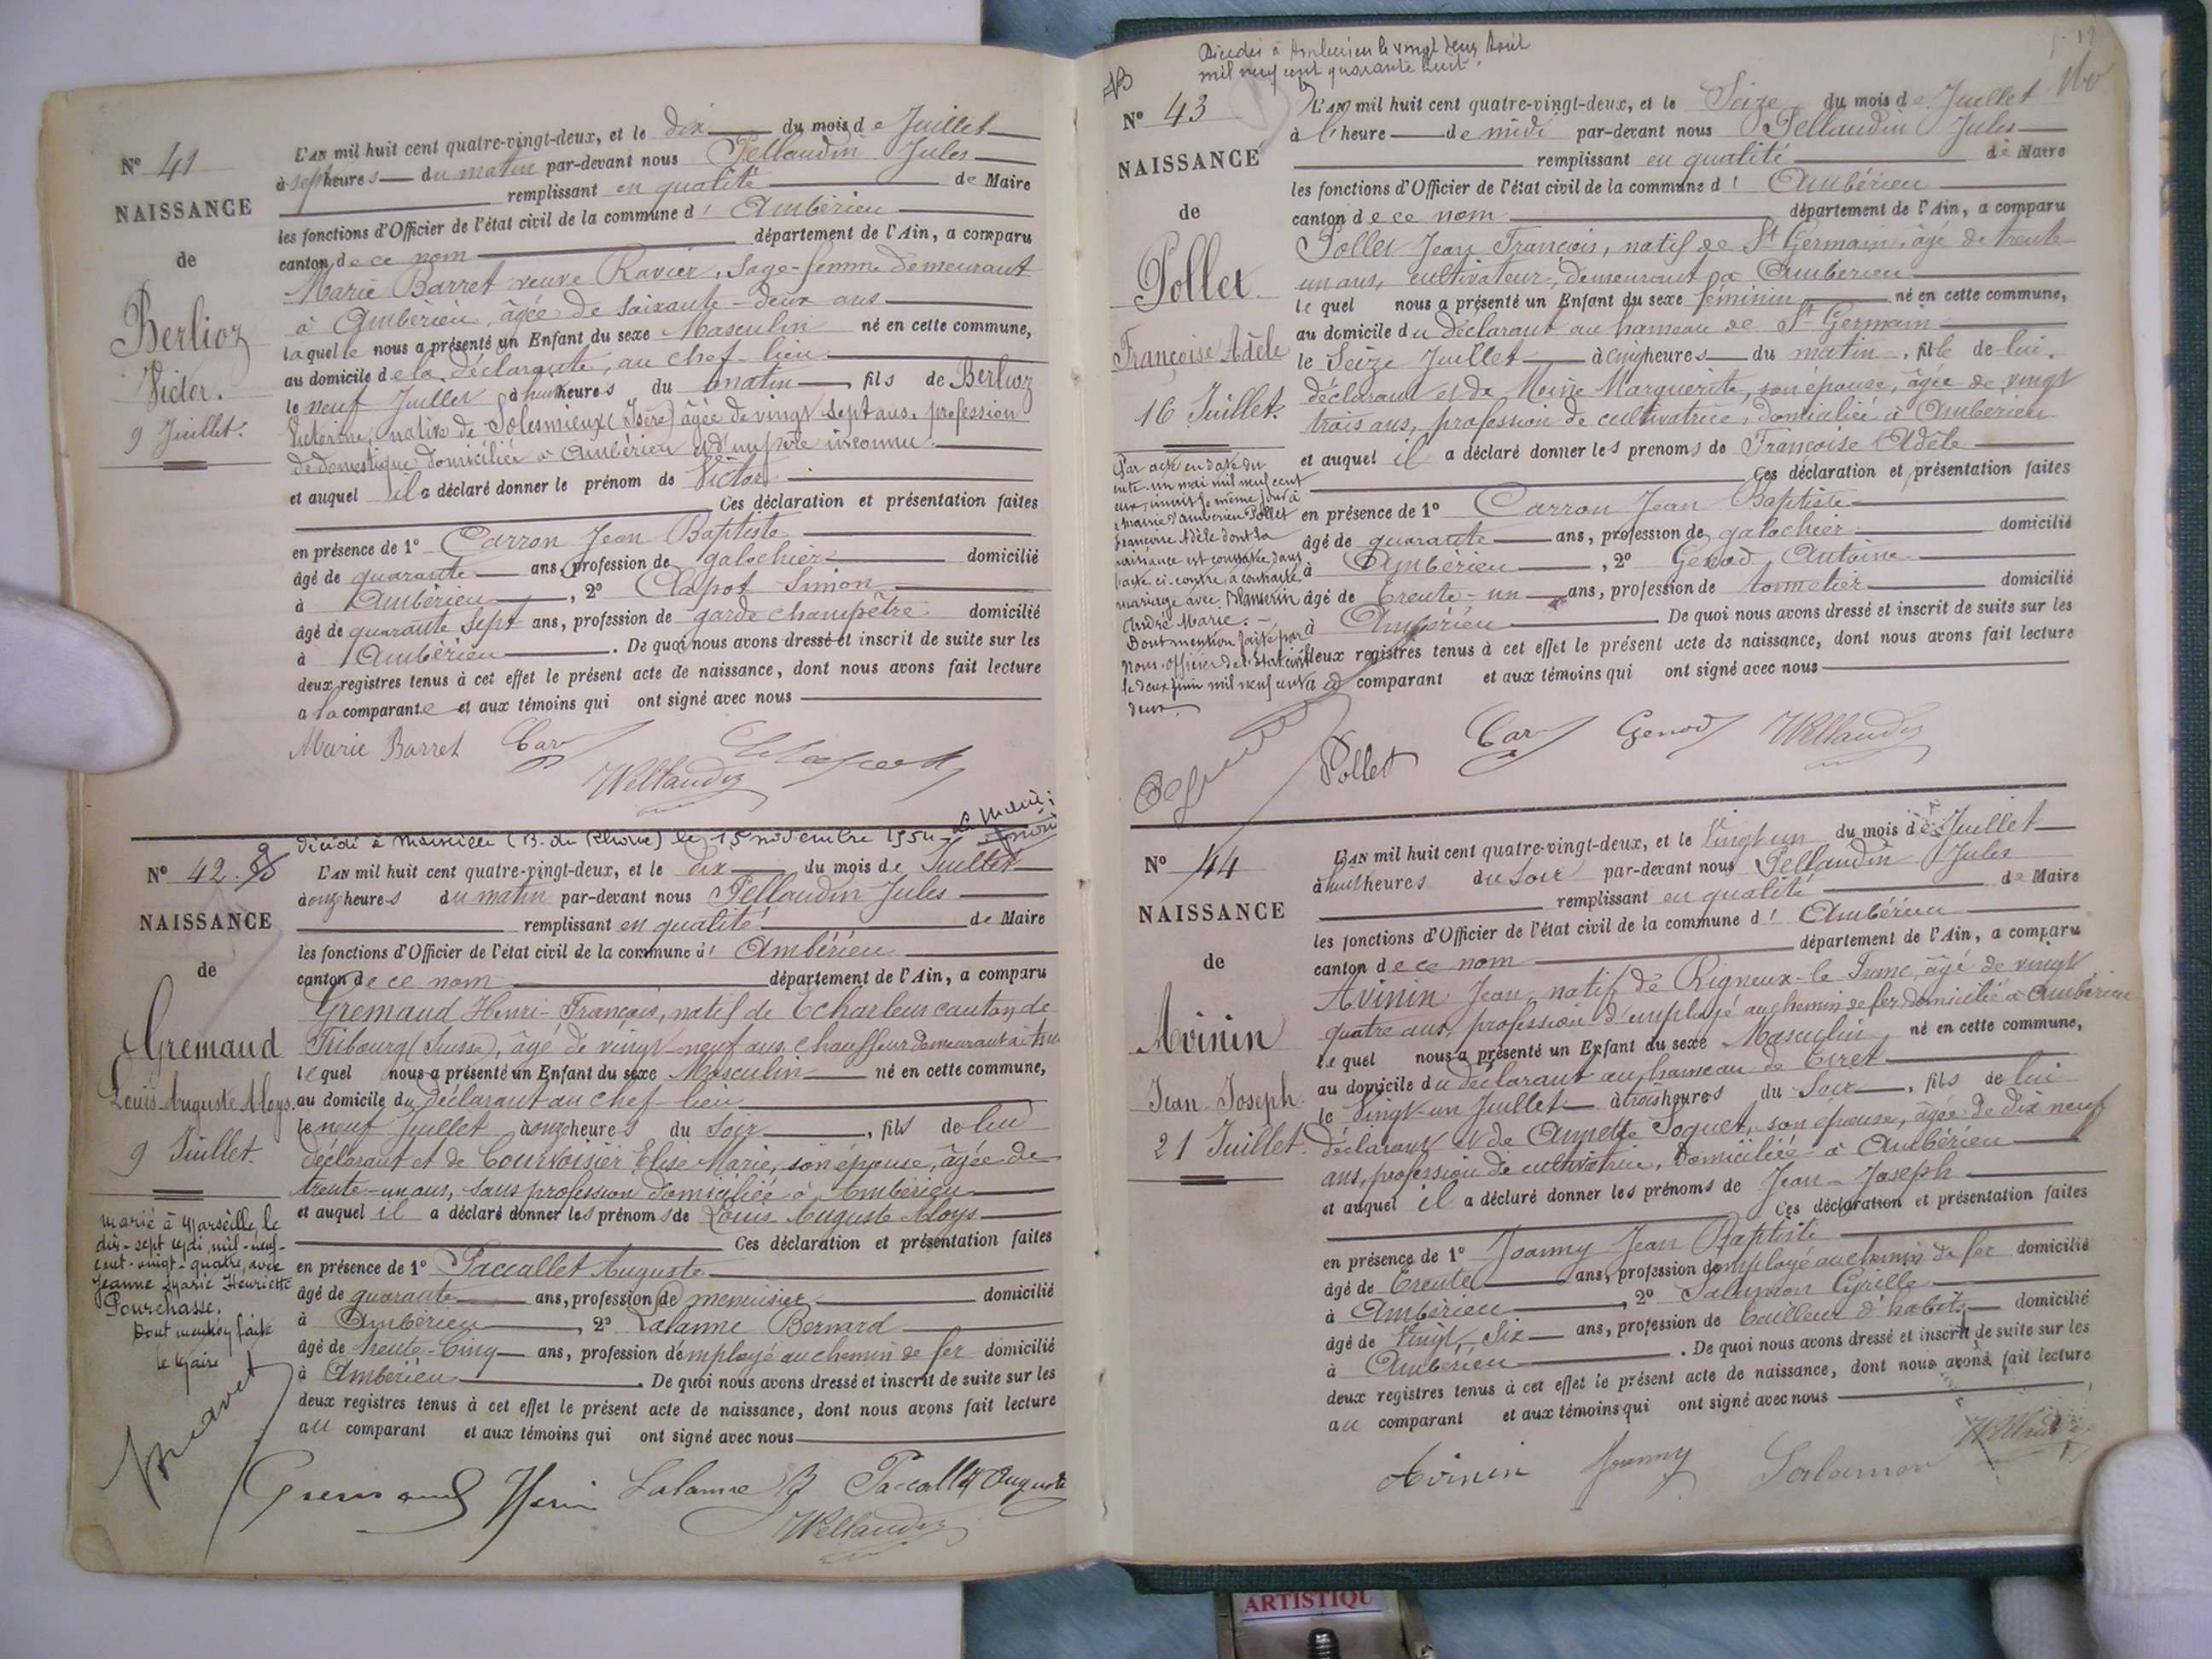 N° 41
NAISSANCE
de
Berlioz
Victor.
9 Juillet.
L'AN mil huit cent quatre-vingt-deux, et le dix du mois de Juillet
à sept heures du matin par-devant nous Pellaudin Jules
remplissant en qualité de Maire
les fonctions d'Officier de l'état civil de la commune d' Ambérieu
canton de ce nom département de l'Ain, a comparu
Marie Barret veuve Ravier, Sage-femme demeurant
à Ambérieu, âgée de soixante-deux ans
laquelle nous a présenté un Enfant du sexe Masculin né en cette commune,
au domicile de la déclarante, au chef-lieu
le neuf Juillet à huit heures du matin, fils de Berlioz
Victorine, native de Solesmieux (Isère) âgée de vingt sept ans, profession
de domestique domiciliée à Ambérieu et d'un père inconnu
et auquel il a déclaré donner le prénom de Victor
Ces déclaration et présentation faites
en présence de 1° Carron Jean Baptiste
âgé de quarante ans, profession de galochier domicilié
à Ambérieu, 2° Clapot Simon
âgé de quarante sept ans, profession de garde champêtre domicilié
à Ambérieu. De quoi nous avons dressé et inscrit de suite sur les
deux registres tenus à cet effet le présent acte de naissance, dont nous avons fait lecture
a la comparante et aux témoins qui ont signé avec nous
Marie Barret Car
Décédé à Marseille (B. du Rhône) le 15 novembre 1954
N° 42
NAISSANCE
de
Gremaud
Louis Auguste Aloys.
9 Juillet.
marié à Marseille le
dix-sept mai mil-neuf-
cent-vingt-quatre, avec
Jeanne Marie Henriette
Pourchasse.
Dont mention faite
le Maire
L'AN mil huit cent quatre-vingt-deux, et le dix du mois de Juillet
à onze heures du matin par-devant nous Pellaudin Jules
remplissant en qualité de Maire
les fonctions d'Officier de l'état civil de la commune d' Ambérieu
canton de ce nom département de l'Ain, a comparu
Gremaud Henri-François, natif de Echarlens canton de
Fribourg (Suisse), âgé de vingt-neuf ans, chauffeur demeurant à
lequel nous a présenté un Enfant du sexe Masculin né en cette commune,
au domicile du déclarant au chef-lieu
le neuf Juillet à onze heures du soir, fils de lui
déclarant et de Courvoisier Elise Marie, son épouse, âgée de
trente-un ans, sans profession domiciliée à Ambérieu
et auquel il a déclaré donner les prénoms de Louis Auguste Aloys
Ces déclaration et présentation faites
en présence de 1° Paccallet Auguste
âgé de quarante ans, profession de menuisier domicilié
à Ambérieu, 2° Lalanne Bernard
âgé de trente-Cinq ans, profession d'employé au chemin de fer domicilié
à Ambérieu. De quoi nous avons dressé et inscrit de suite sur les
deux registres tenus à cet effet le présent acte de naissance, dont nous avons fait lecture
au comparant et aux témoins qui ont signé avec nous
Gremaud Henri Lalanne B Paccallet Auguste
Décédée à Ambérieu le vingt deux Août
mil neuf cent quarante huit.
N° 43
NAISSANCE
de
Pollet
Françoise Adèle
16 Juillet.
Par acte en date du
trente-un mai mil neuf cent
deux, inscrit le même jour à
la mairie d'Ambérieu Pollet
Françoise Adèle dont la
naissance est constatée dans
l'acte ci-contre, a contracté
mariage avec
André Marie.
Dont mention faite par
Nous, officier de l'Etat civil
le deux Juin mil neuf cent
deux.
L'AN mil huit cent quatre-vingt-deux, et le Seize du mois de Juillet
à l'heure de midi par-devant nous Pellaudin Jules
remplissant en qualité de Maire
les fonctions d'Officier de l'état civil de la commune d' Ambérieu
canton de ce nom département de l'Ain, a comparu
Pollet Jean François, natif de St Germain, âgé de trente
un ans, cultivateur, demeurant à Ambérieu
lequel nous a présenté un Enfant du sexe féminin né en cette commune,
au domicile du déclarant au hameau de St Germain
le Seize Juillet à cinq heures du matin, fille de lui
déclarant et de Moine Marguerite, son épouse, âgée de vingt
trois ans, profession de cultivatrice, domiciliée à Ambérieu
et auquel il a déclaré donner les prénoms de Françoise Adèle
Ces déclaration et présentation faites
en présence de 1° Carron Jean Baptiste
âgé de quarante ans, profession de galochier domicilié
à Ambérieu, 2° Genod Antoine
âgé de trente-un ans, profession de tonnelier domicilié
à Ambérieu De quoi nous avons dressé et inscrit de suite sur les
deux registres tenus à cet effet le présent acte de naissance, dont nous avons fait lecture
comparant et aux témoins qui ont signé avec nous
Pollet Car Genod
N° 44
NAISSANCE
de
Avinin
Jean Joseph
21 Juillet.
L'AN mil huit cent quatre-vingt-deux, et le Vingt un du mois de Juillet
à huit heures du soir par-devant nous Pellaudin Jules
remplissant en qualité de Maire
les fonctions d'Officier de l'état civil de la commune d' Ambérieu
canton de ce nom département de l'Ain, a comparu
Avinin Jean natif de Rigneux-le Franc, âgé de vingt
quatre ans, profession d'employé au chemin de fer domicilié à Ambérieu
lequel nous a présenté un Enfant du sexe Masculin né en cette commune,
au domicile du déclarant au hameau de Tiret
le Vingt-un Juillet à trois heures du Soir, fils de lui
déclarant et de Annette Joguet, son épouse, âgée de dix neuf
ans, profession de cultivatrice, domiciliée à Ambérieu
et auquel il a déclaré donner les prénoms de Jean-Joseph
Ces déclaration et présentation faites
en présence de 1° Joanny Jean Baptiste
âgé de trente ans, profession d'employé au chemin de fer domicilié
à Ambérieu, 2° Salamon Cyrille
âgé de Vingt Six ans, profession de tailleur d'habits domicilié
à Ambérieu. De quoi nous avons dressé et inscrit de suite sur les
deux registres tenus à cet effet le présent acte de naissance, dont nous avons fait lecture
au comparant et aux témoins qui ont signé avec nous
Avinin Joanny Salamon
ARTISTIQU